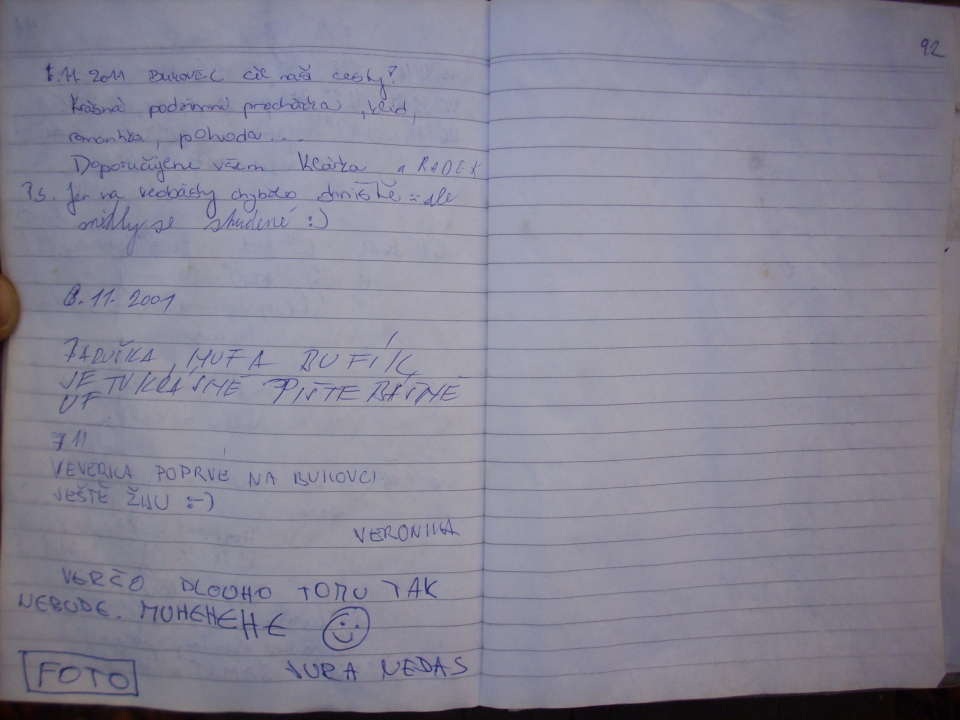 1.11. 2011 BUKOVEC cíl naší cesty?
Krásná podzimní procházka, klid,
romantika, pohoda....
Doporučujene všem Klárka a RADEK
Ps. Jen na klobásky chybělo ohniště :- ale
snědly se studené :)
6.11. 2001
MUFA BUFÍK
JE TU KRÁSNĚ PIŠTE BÁSNE
UF
7 11
VEVERKA POPRVÉ NA BUKOVCI
JEŠTĚ ŽIJU :-)
VERONIKA
VERČO DLOUHO TOMU TAK
NEBUDE. MUHEHEHE
JURA NEDAS
FOTO
92